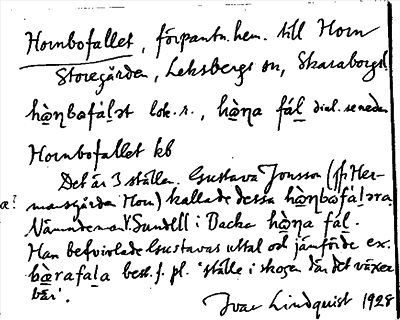 Hornbofallet, förpantn. hem. till Horn
Storegården, Leksbergs sn, Skaraborgs l.
hω̱ṇbɷfáḻət lok. r., hω̱ṇa fáḻ dial. se nedan
Hornbofallet kb
Det är 3 ställen. Gustava Jonsson (f. i Her-
mansgården Horn) kallade dessa hω̱ṇbɷfáḻəra
Nämndeman V. Sundell i Backa hω̱ṇa fáḻ.
Han betvivlade Gustavas uttal och jämförde ex.
bæ̱rafaḻa best. f. pl. 'ställe i skogen där det växer
bär'.
Ivar Lindquist 1928
æ?